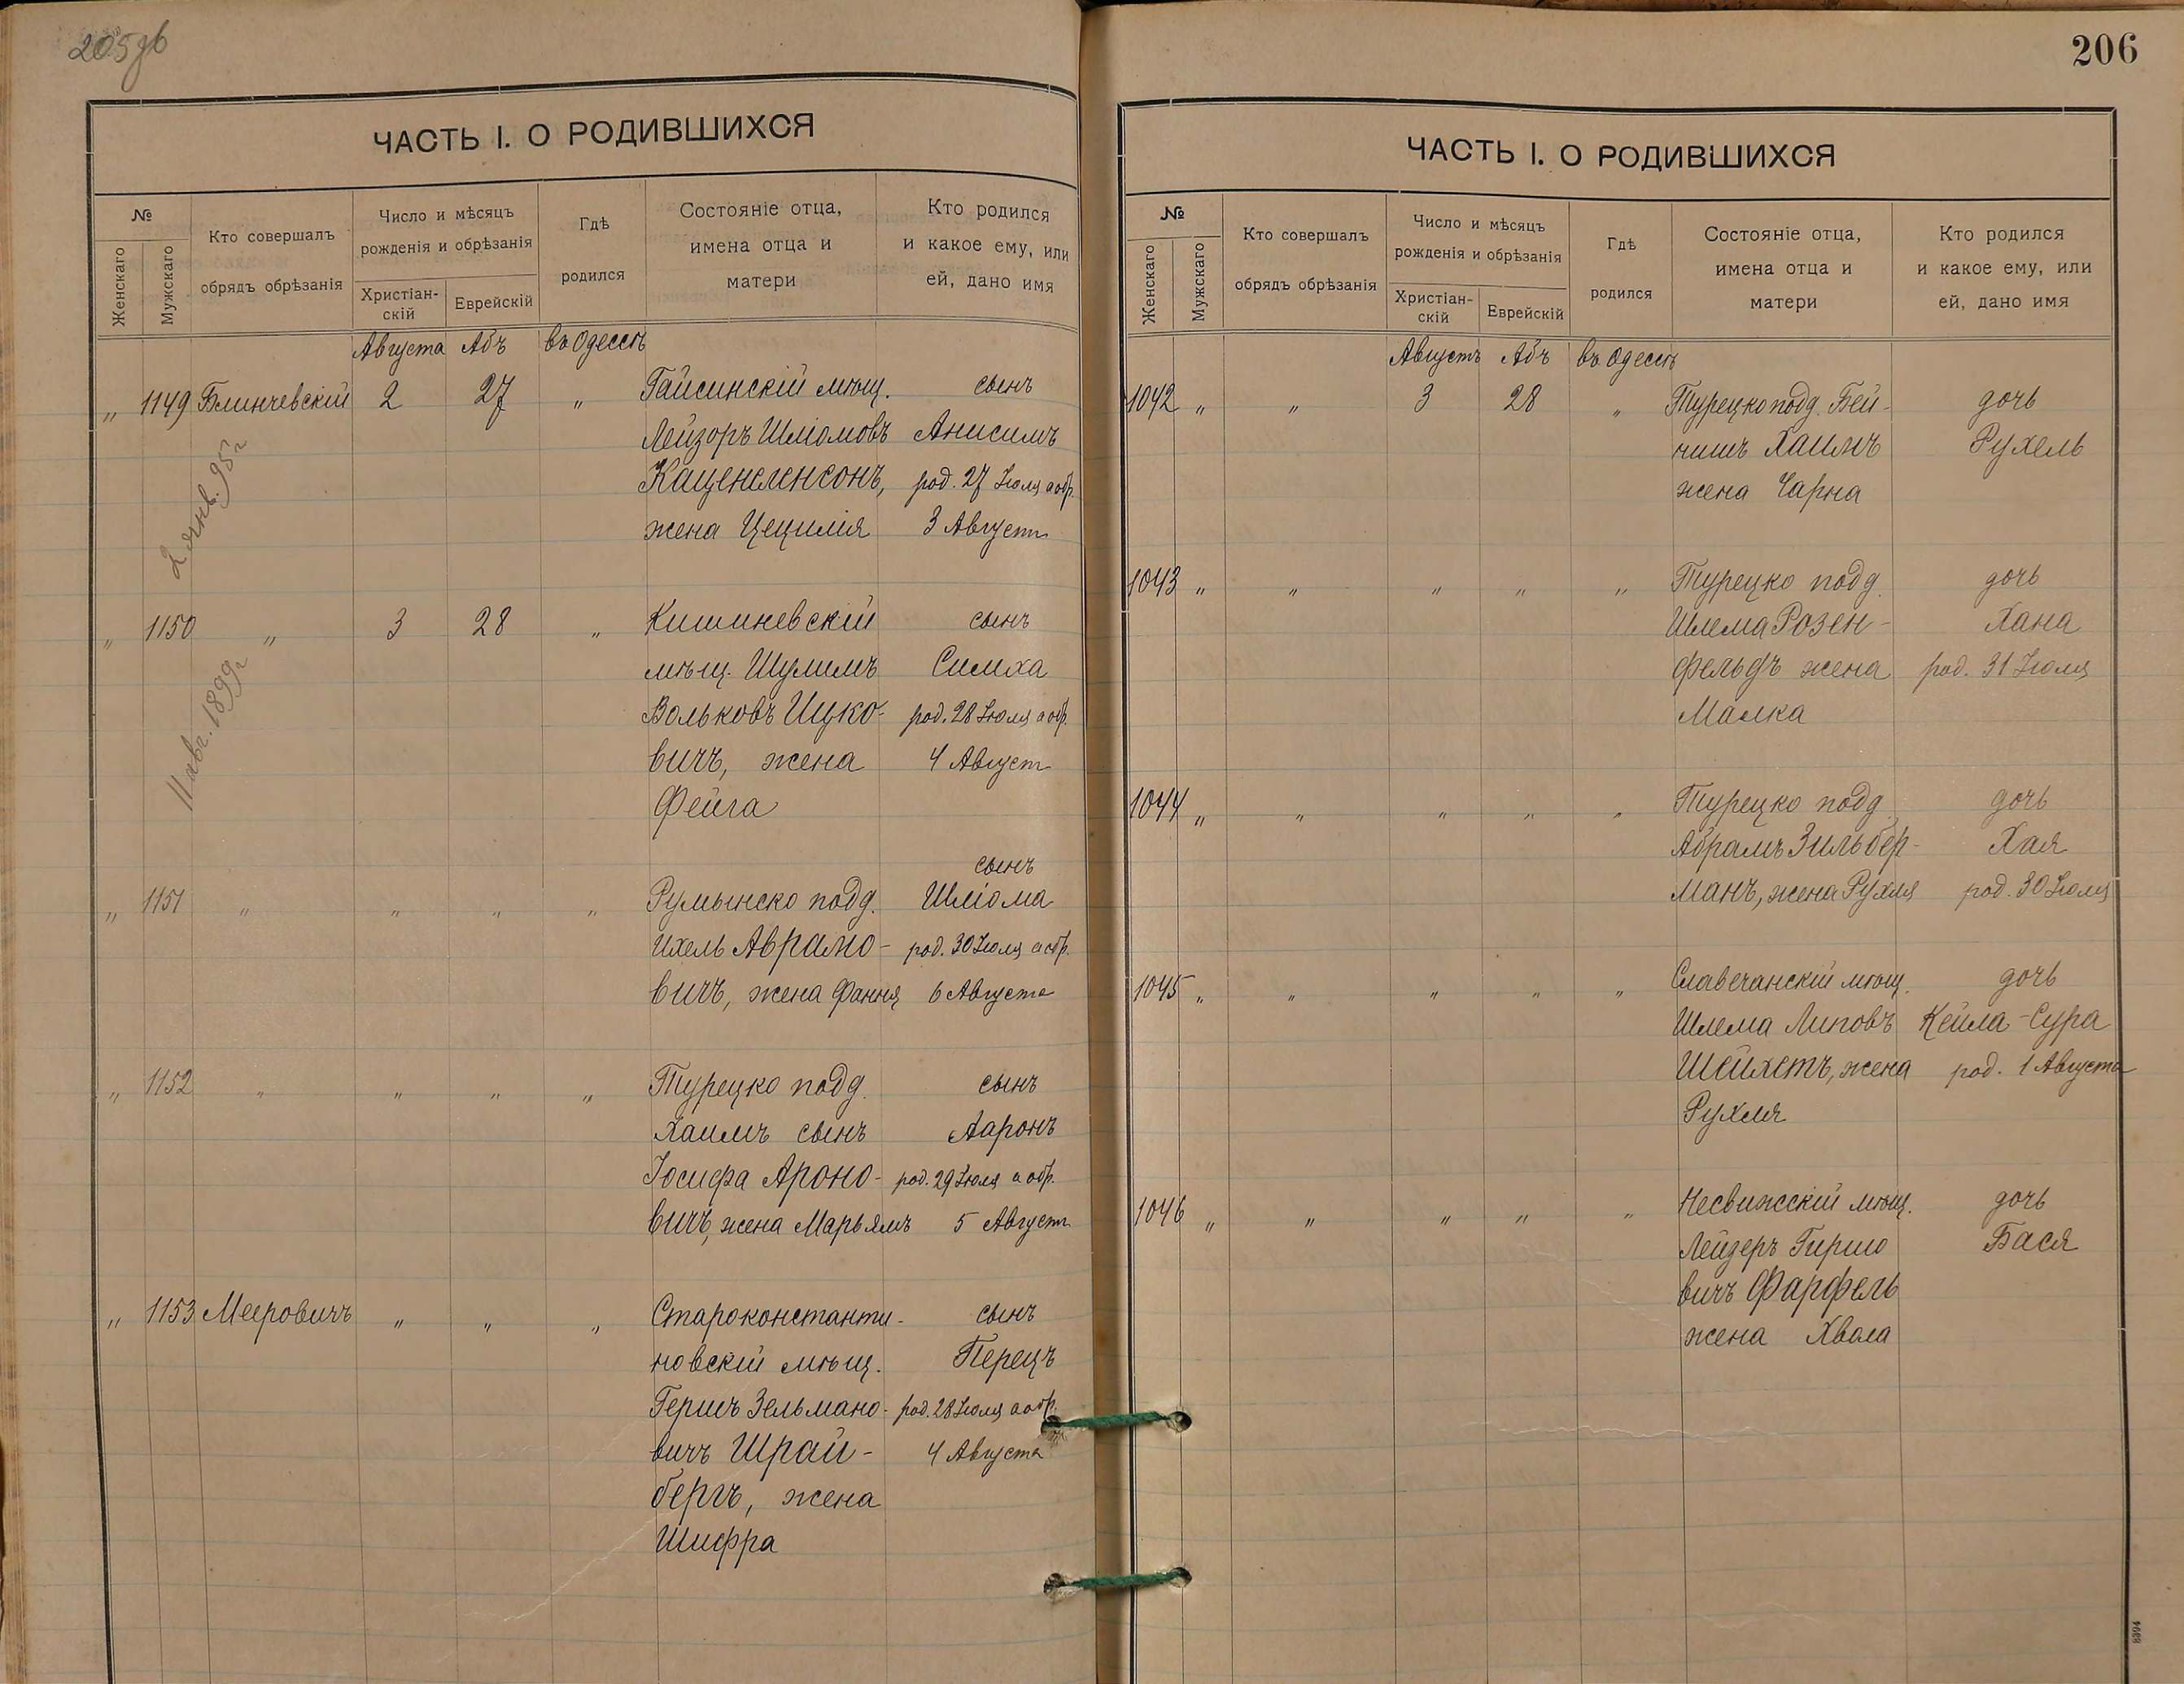 205об
ЧАСТЬ I. О РОДИВШИХСЯ
№
Женскаго
Мужскаго
Кто совершалъ
обрядъ обрѣзанія
Число и мѣсяцъ
рожденія и обрѣзанія
Христіан-
скій
Еврейскій
Гдѣ
родился
Состояніе отца,
имена отца и
матери
Кто родился
и какое ему, или
ей, дано имя
Августа Абъ въ Одессѣ
„ 1149 Блинчевскій 2 27 „ Гайсинскій мѣщ. сынъ
Лейзоръ Шліомовъ Анисимъ
Каценеленсонъ, род. 27 Іюля а обр.
жена Цецилія 3 Августа
2 янв. 95 г
„ 1150 „ 3 28 „ Кишиневскій сынъ
мѣщ. Шулимъ Симха
Вольковъ Ицко- род. 28 Іюля а обр.
вичъ, жена 4 Август
Фейга
11 авг. 1899 г
сынъ
„ 1151 „ „ „ „ Румынско подд. Шліома
Ихель Аврамо- род. 30 Іюля а обр.
вичъ, жена Фання 6 Августа
„ 1152 „ „ „ „ Турецко подд. сынъ
Хаимъ сынъ Ааронъ
Іосифа Ароно- род. 29 Іюля а обр.
вичъ, жена Марьямъ 5 Август
„ 1153 Мееровичъ „ „ „ Староконстанти- сынъ
новскій мѣщ. Перецъ
Гершъ Зельмано- род. 28 Іюля а обр.
вичъ Шрай- 4 Августа
бергъ, жена
Шифра
206
ЧАСТЬ I. О РОДИВШИХСЯ
№
Женскаго
Мужскаго
Кто совершалъ
обрядъ обрѣзанія
Число и мѣсяцъ
рожденія и обрѣзанія
Христіан-
скій
Еврейскій
Гдѣ
родился
Состояніе отца,
имена отца и
матери
Кто родился
и какое ему, или
ей, дано имя
Августъ Абъ въ Одессѣ
1042 „ „ 3 28 „ Турецко подд. Бей- дочь
нишъ Хаимъ Рухель
жена Чарна
1043 „ „ „ „ „ Турецко подд. дочь
Шлема Розен- Хана
фельдъ жена род. 31 Іюля
Малка
1044 „ „ „ „ „ Турецко подд дочь
Абрамъ Зильбер- Хая
манъ, жена Рухля род. 30 Іюля
1045 „ „ „ „ „ Славечанскій мѣщ. дочь
Шлема Липовъ Кейла-Сура
Шейхетъ, жена род. 1 Августа
Рухля
1046 „ „ „ „ „ Несвижсскій мѣщ. дочь
Лейзеръ Гиршо Бася
вичъ Фарфель
жена Хвала
8394